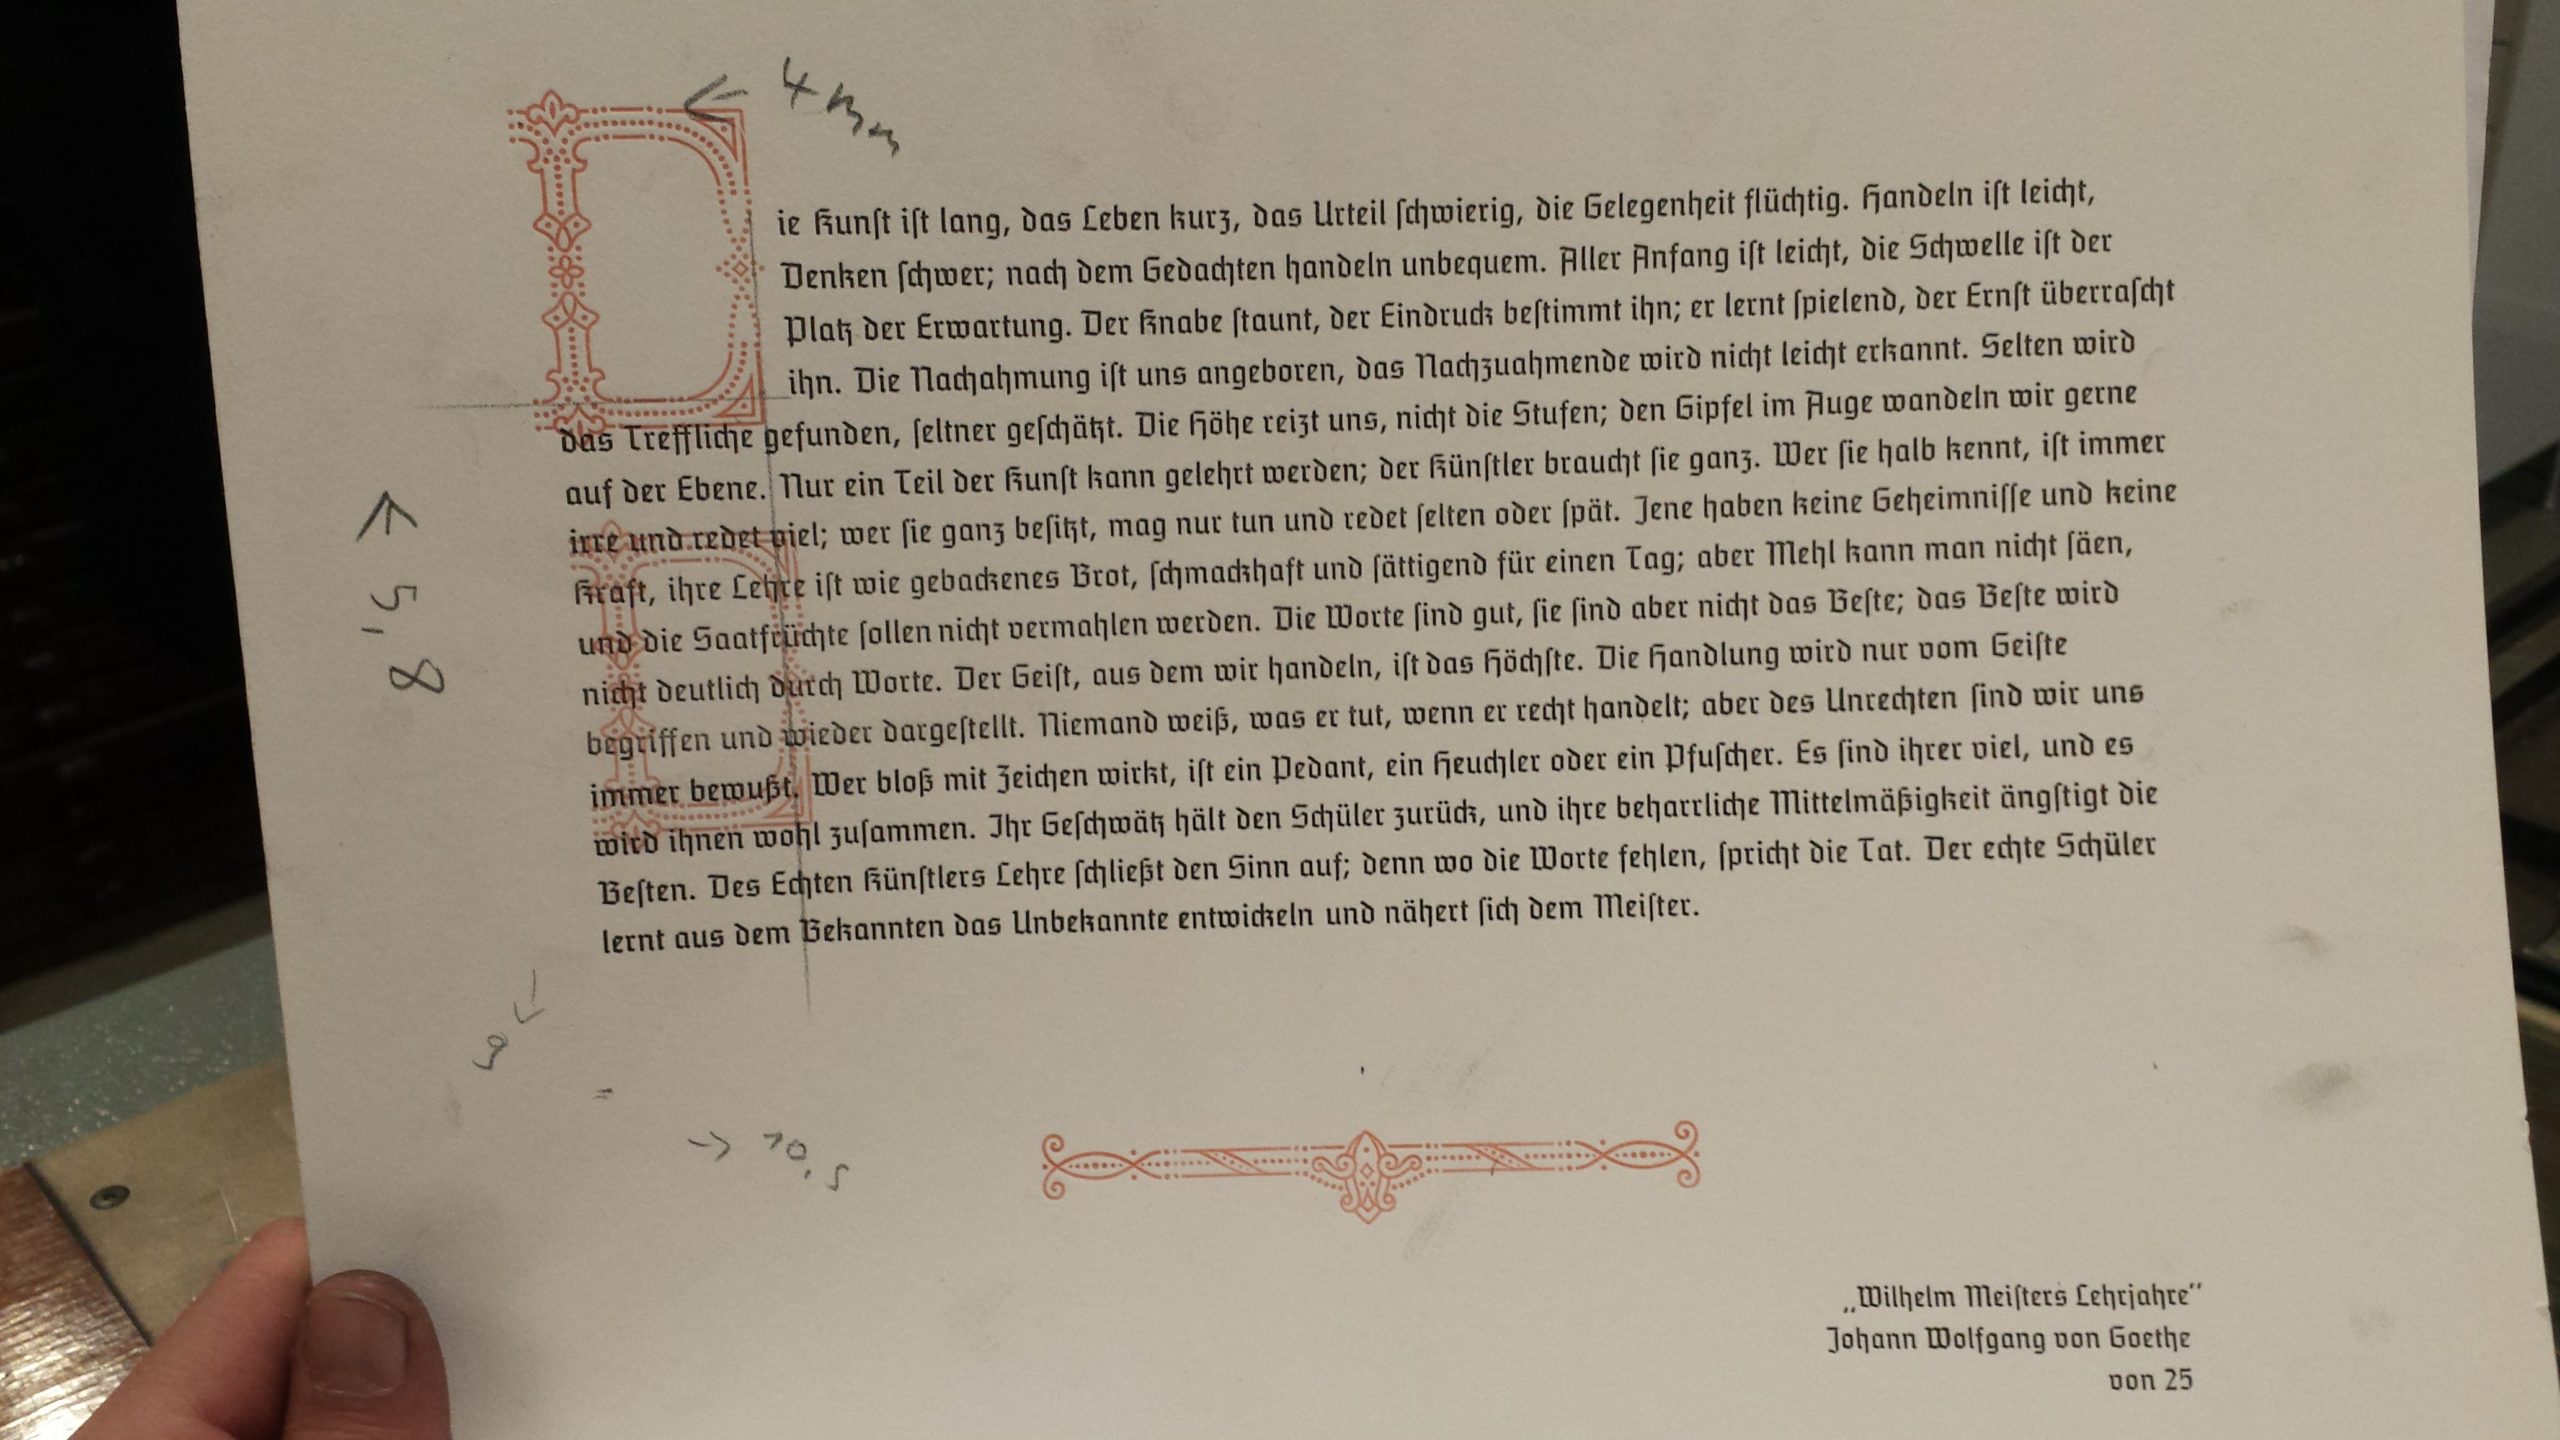 4 mm
Die Kunſt iſt lang, das Leben kurz, das Urteil ſchwierig, die Gelegenheit flüchtig. Handeln iſt leicht,
Denken ſchwer; nach dem Gedachten handeln unbequem. Aller Anfang iſt leicht, die Schwelle iſt der
Platz der Erwartung. Der Knabe ſtaunt, der Eindruck beſtimmt ihn; er lernt ſpielend, der Ernſt überraſcht
ihn. Die Nachahmung iſt uns angeboren, das Nachzuahmende wird nicht leicht erkannt. Selten wird
das Treffliche gefunden, ſeltner geſchätzt. Die Höhe reizt uns, nicht die Stufen; den Gipfel im Auge wandeln wir gerne
auf der Ebene. Nur ein Teil der Kunſt kann gelehrt werden; der Künſtler braucht ſie ganz. Wer ſie halb kennt, iſt immer
irre und redet viel; wer ſie ganz beſitzt, mag nur tun und redet ſelten oder ſpät. Jene haben keine Geheimniſſe und keine
Kraft, ihre Lehre iſt wie gebackenes Brot, ſchmackhaft und ſättigend für einen Tag; aber Mehl kann man nicht ſäen,
und die Saatfrüchte ſollen nicht vermahlen werden. Die Worte ſind gut, ſie ſind aber nicht das Beſte; das Beſte wird
nicht deutlich durch Worte. Der Geiſt, aus dem wir handeln, iſt das Höchſte. Die Handlung wird nur vom Geiſte
begriffen und wieder dargeſtellt. Niemand weiß, was er tut, wenn er recht handelt; aber des Unrechten ſind wir uns
immer bewußt. Wer bloß mit Zeichen wirkt, iſt ein Pedant, ein Heuchler oder ein Pfuſcher. Es ſind ihrer viel, und es
wird ihnen wohl zuſammen. Ihr Geſchwätz hält den Schüler zurück, und ihre beharrliche Mittelmäßigkeit ängſtigt die
Beſten. Des Echten Künſtlers Lehre ſchließt den Sinn auf; denn wo die Worte fehlen, ſpricht die Tat. Der echte Schüler
lernt aus dem Bekannten das Unbekannte entwickeln und nähert ſich dem Meiſter.
5,8
9
→ 10,5
„Wilhelm Meiſters Lehrjahre“
Johann Wolfgang von Goethe
von 25